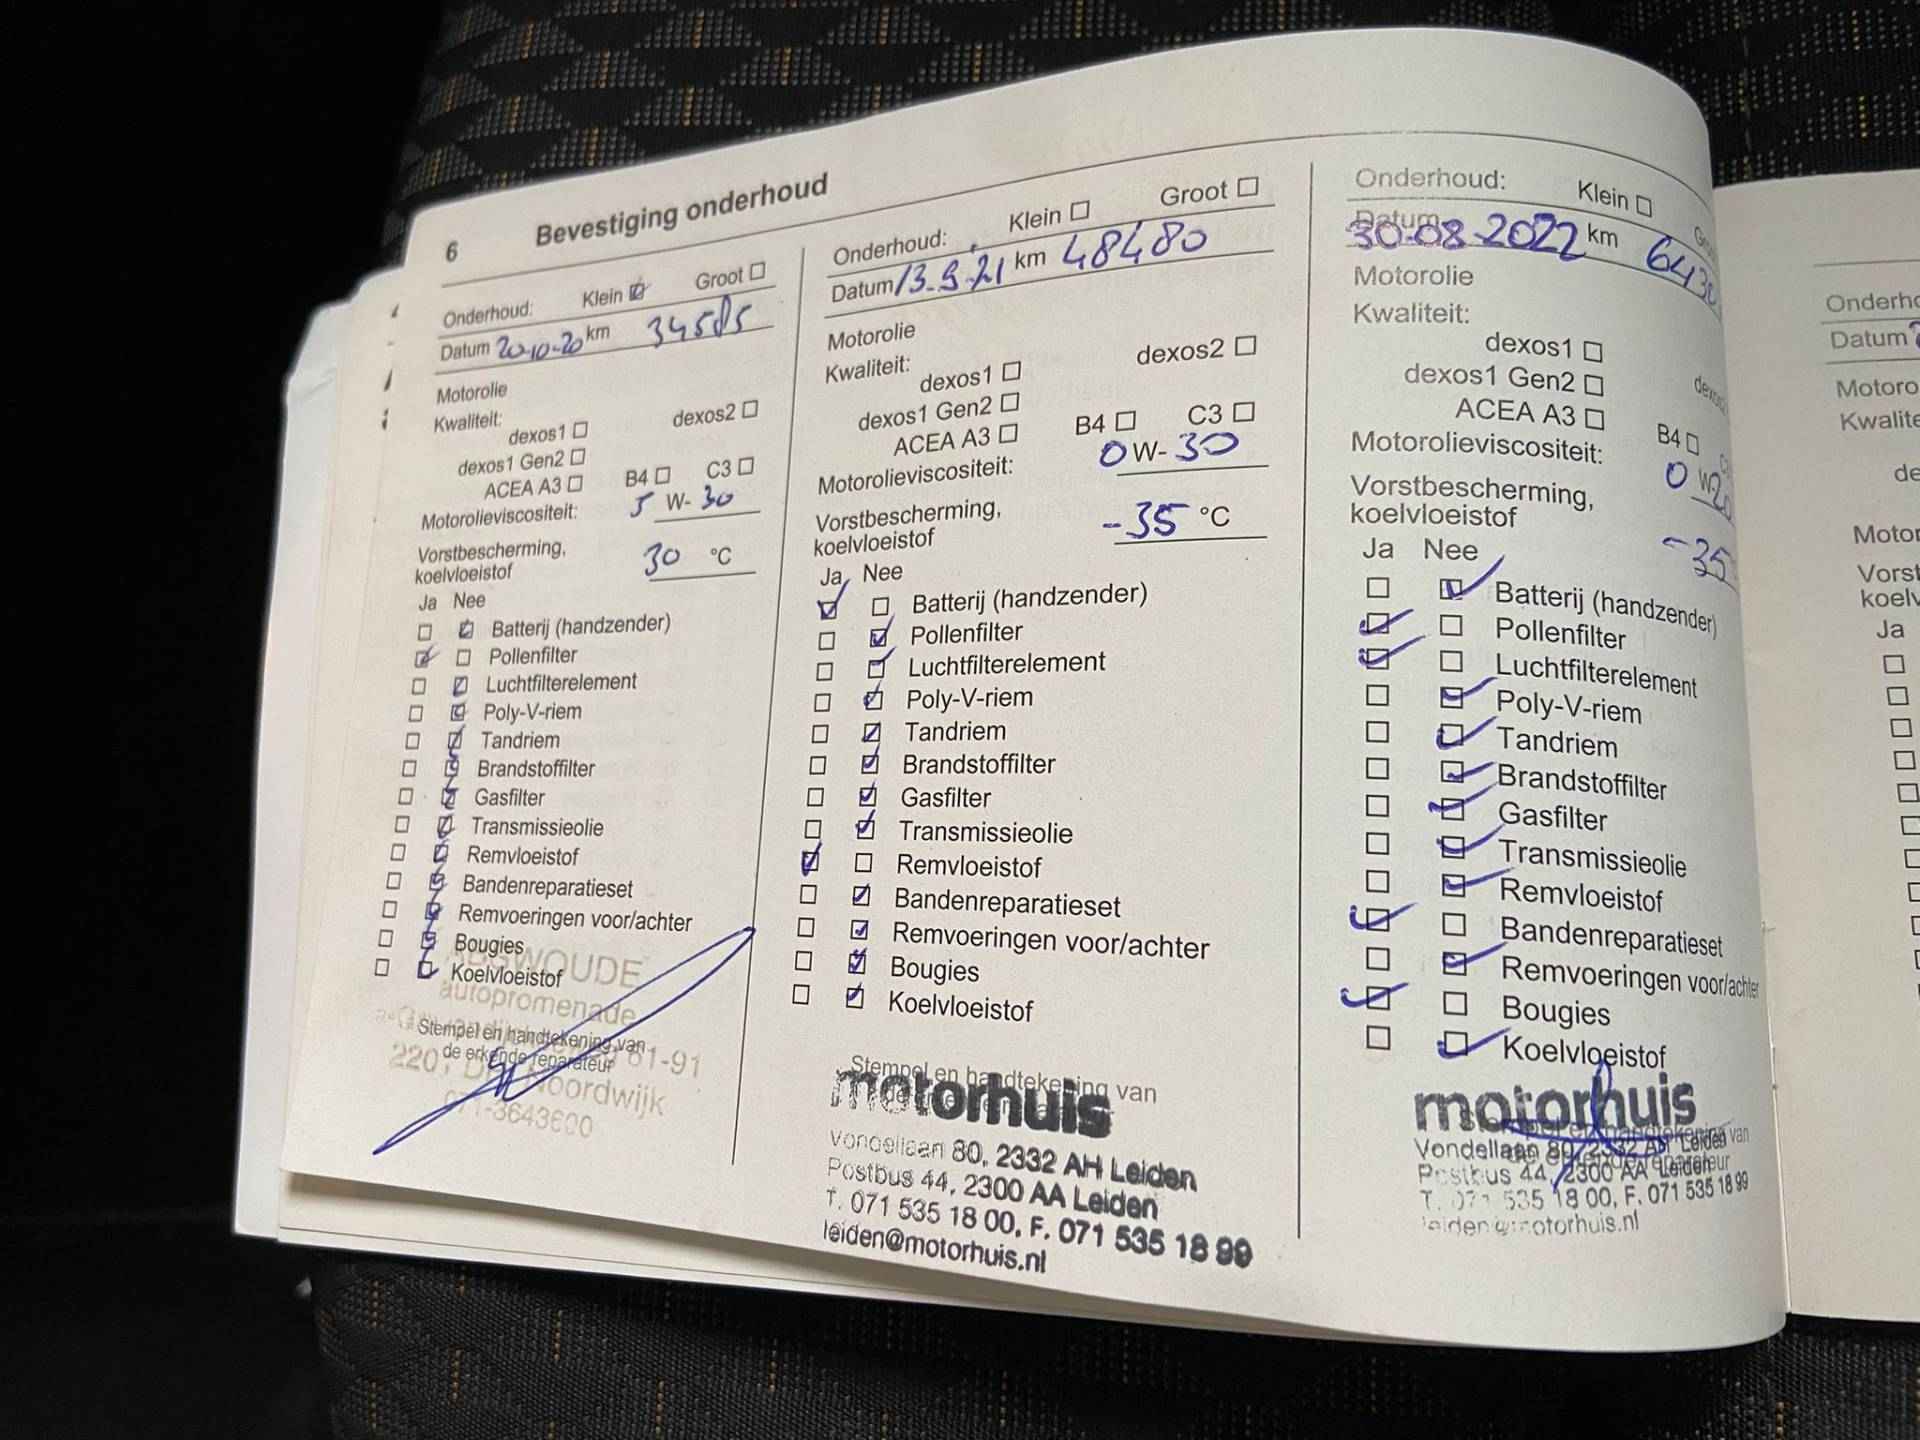 6 Bevestiging onderhoud
Onderhoud: Klein Groot
Datum 20-10-20 km 34585
Motorolie
Kwaliteit:
dexos1 dexos2
dexos1 Gen2
ACEA A3 B4 C3
Motorolieviscositeit: 5 W- 30
Vorstbescherming,
koelvloeistof 30 °C
Ja Nee
Batterij (handzender)
Pollenfilter
Luchtfilterelement
Poly-V-riem
Tandriem
Brandstoffilter
Gasfilter
Transmissieolie
Remvloeistof
Bandenreparatieset
Remvoeringen voor/achter
Bougies
Koelvloeistof
autopromenade
Stempel en handtekening van
de erkende reparateur
61-91
Noordwijk
071-3643600
Onderhoud: Klein Groot
Datum 13-9-21 km 48480
Motorolie
Kwaliteit:
dexos1 dexos2
dexos1 Gen2
ACEA A3 B4 C3
Motorolieviscositeit: 0 W- 30
Vorstbescherming,
koelvloeistof -35 °C
Ja Nee
Batterij (handzender)
Pollenfilter
Luchtfilterelement
Poly-V-riem
Tandriem
Brandstoffilter
Gasfilter
Transmissieolie
Remvloeistof
Bandenreparatieset
Remvoeringen voor/achter
Bougies
Koelvloeistof
Stempel en handtekening van
motorhuis
Vondellaan 80, 2332 AH Leiden
Postbus 44, 2300 AA Leiden
T. 071 535 18 00, F. 071 535 18 99
leiden@motorhuis.nl
Onderhoud: Klein
Datum 30-08-2022 km 6430
Motorolie
Kwaliteit:
dexos1
dexos1 Gen2
ACEA A3 B4
Motorolieviscositeit: 0 W 20
Vorstbescherming,
koelvloeistof -35
Ja Nee
Batterij (handzender)
Pollenfilter
Luchtfilterelement
Poly-V-riem
Tandriem
Brandstoffilter
Gasfilter
Transmissieolie
Remvloeistof
Bandenreparatieset
Remvoeringen voor/achter
Bougies
Koelvloeistof
motorhuis
Vondellaan 80, 2332 AH Leiden
Postbus 44, 2300 AA Leiden
T. 071 535 18 00, F. 071 535 18 99
leiden@motorhuis.nl
Datum
Ja